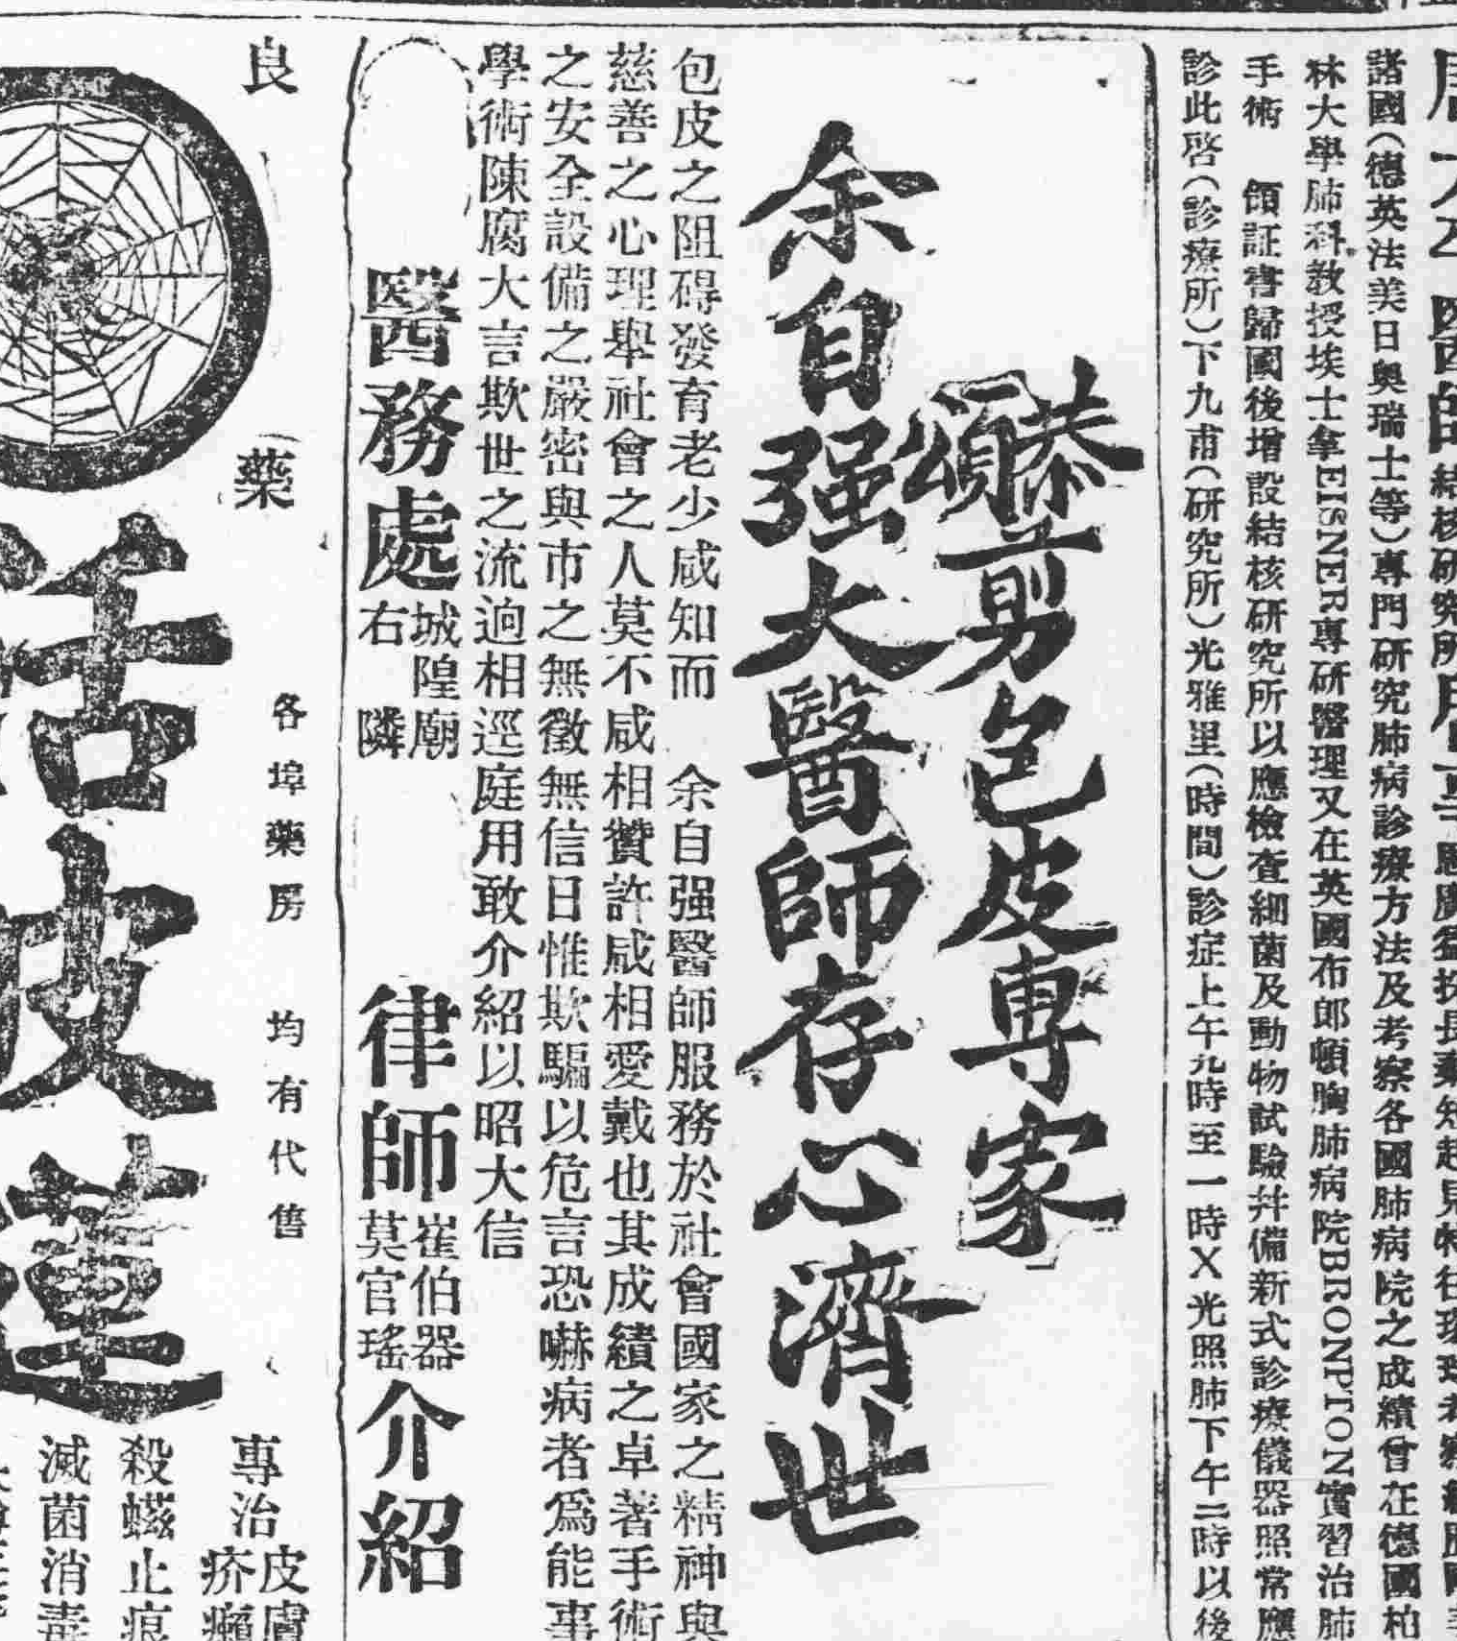 諸國（德英法美日奧瑞士等）專門研究肺病診療方法及考察各國肺病院之成績曾在德國柏
林大學肺科教授埃士拿EISNER專研醫理又在英國布郎頓胸肺病院BRONPTON實習治肺
手術　領証書歸國後增設結核研究所以應檢查細菌及動物試驗并備新式診療儀器照常應
診此啓（診療所）下九甫（研究所）光雅里（時間）診症上午九時至一時X光照肺下午二時以後
恭頌
剪包皮專家
余自强大醫師存心濟世
包皮之阻碍發育老少咸知而　余自强醫師服務於社會國家之精神與
慈善之心理舉社會之人莫不咸相贊許咸相愛戴也其成績之卓著手術
之安全設備之嚴密與市之無徵無信日惟欺騙以危言恐嚇病者爲能事
學術陳腐大言欺世之流逈相逕庭用敢介紹以昭大信
醫務處 城隍廟右隣
律師 崔伯器 莫官瑤 介紹
良藥
各埠藥房　均有代售
活皮蓮
專治皮膚疥癩
殺蟛止痕
滅菌消毒